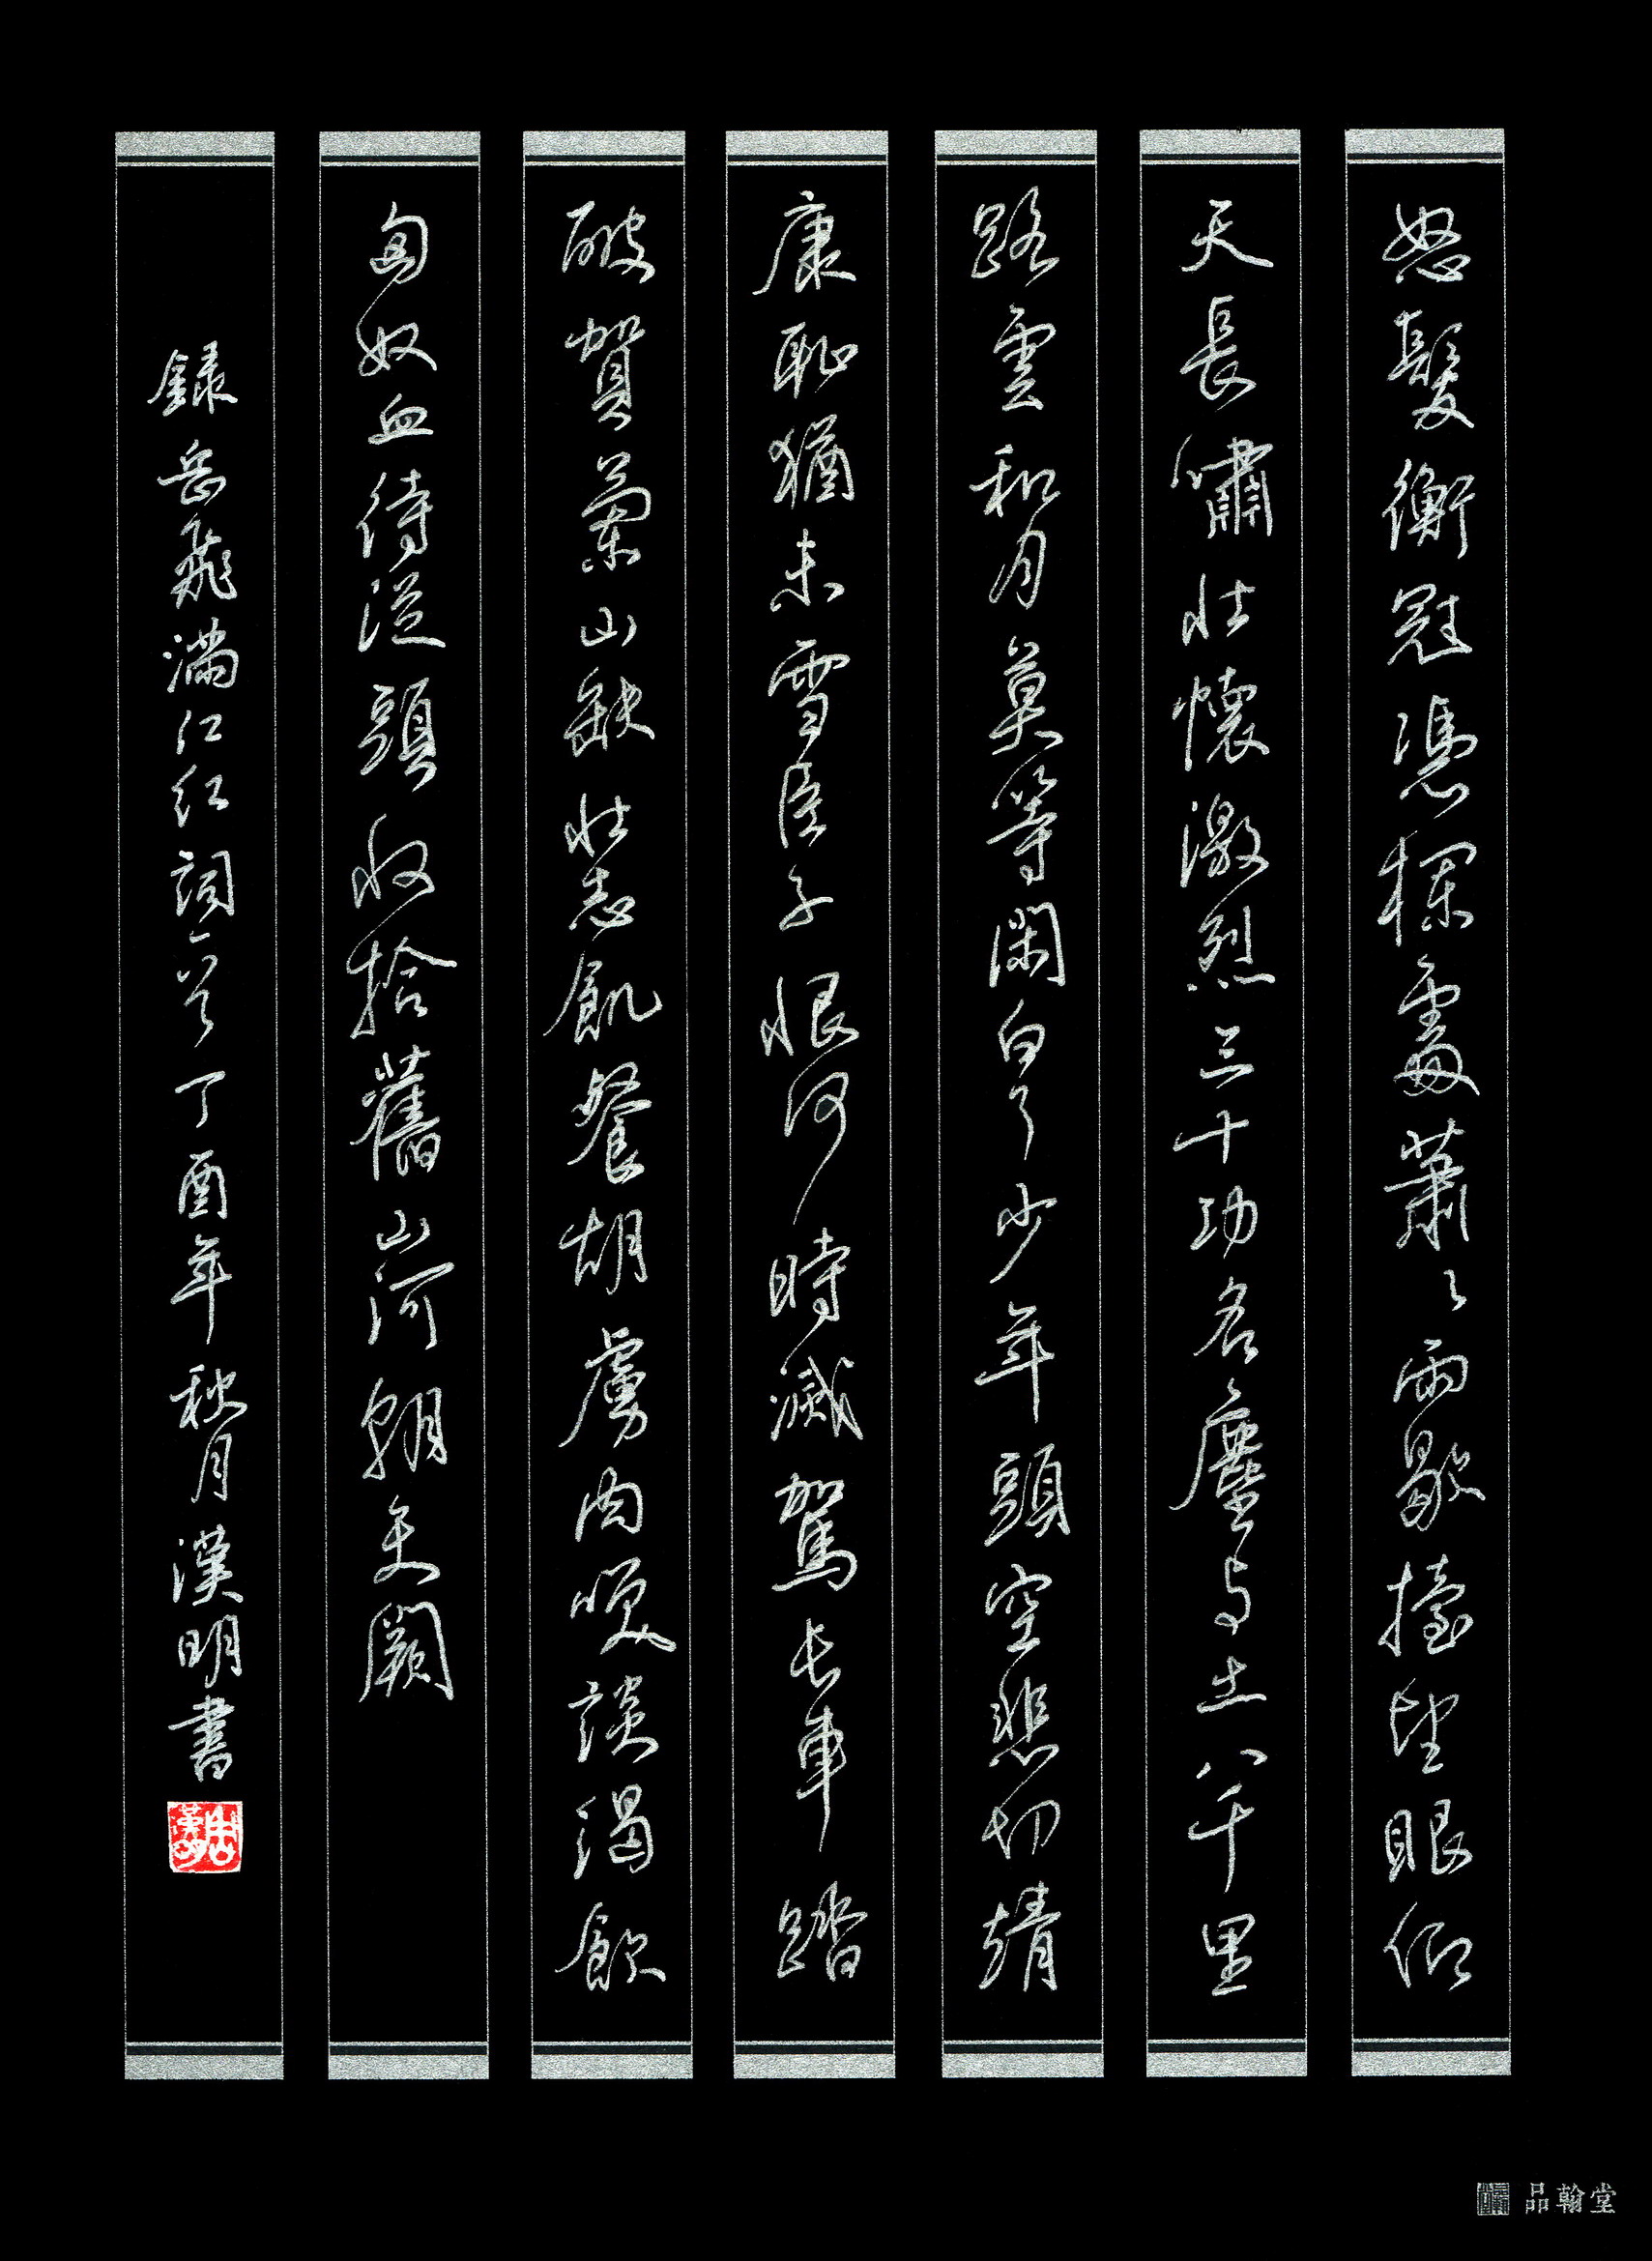 怒髮衝冠憑欄處蕭々雨歇擡望眼仰
天長嘯壯懷激烈三十功名塵与土八千里
路雲和月莫等閑白了少年頭空悲切靖
康恥猶未雪臣子恨何時滅駕长車踏
破賀蘭山缺壯志飢餐胡虜肉咲談渴飲
匈奴血待從頭收拾舊山河朝天闕
錄岳飛滿江紅詞一首丁酉年秋月漢明書
周漢明
品翰堂